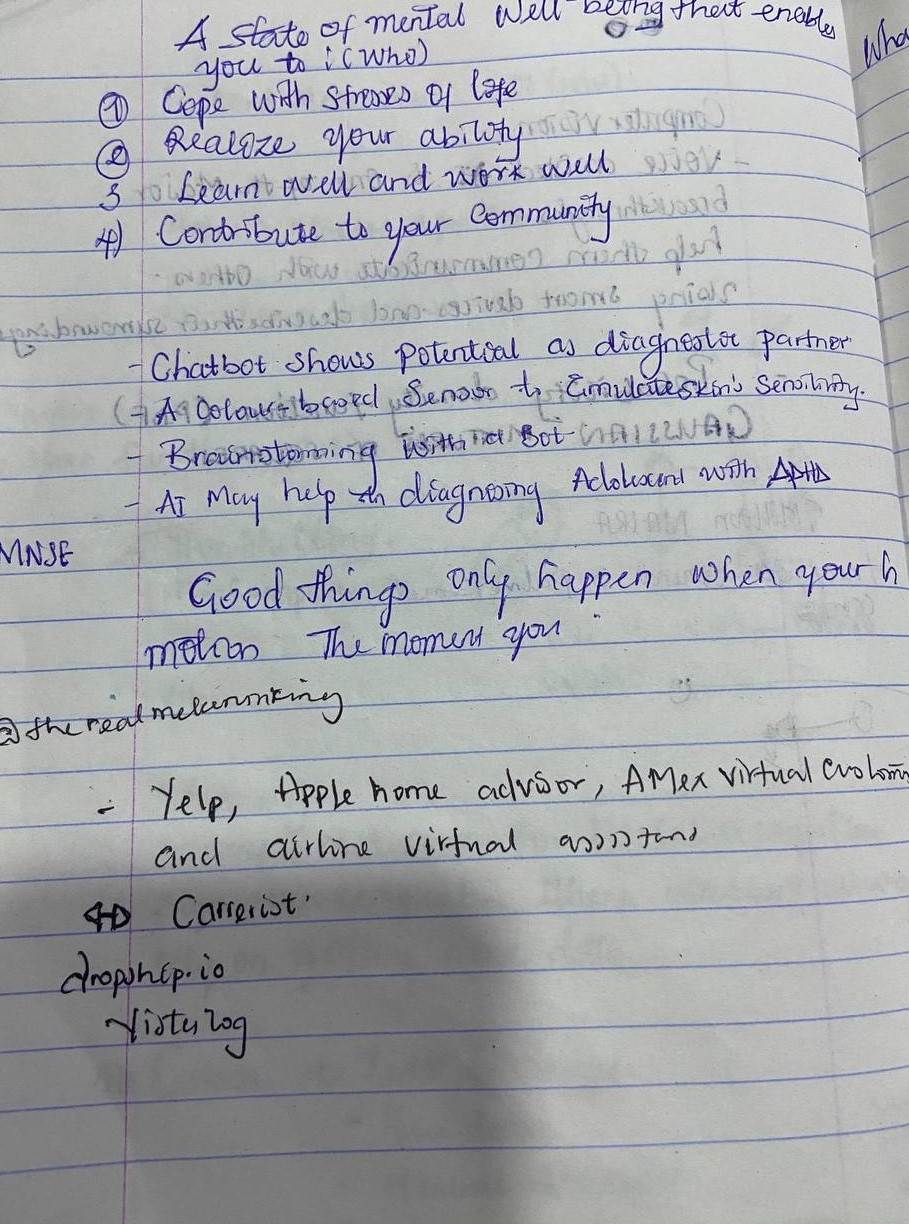 A state of mental well-being that enables
you to : (WHO)
① Cope with stresses of life
② Realize your ability
3 Learn well and work well
4) Contribute to your Community
- Chatbot shows potential as diagnostic partner
- A Colour-based Sensor to Emulate skin's Sensitivity.
- Brainstorming with a Bot
- AI May help in diagnosing Adolescent with ADHD
MNSE
Good things only happen when your h
motion The moment you
@ the real
- Yelp, Apple home advisor, AMex virtual
and airline virtual assistand
Carrerist
dropship.io